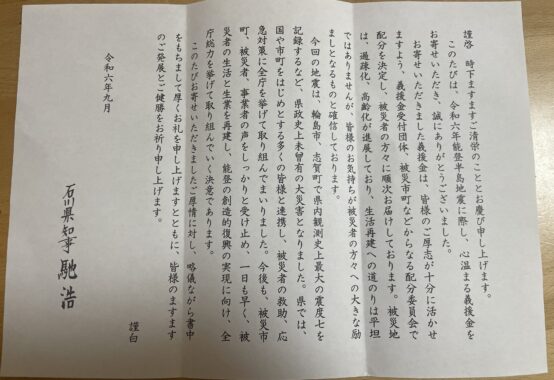 謹啓　時下ますますご清栄のこととお慶び申し上げます。
このたびは、令和六年能登半島地震に際し、心温まる義援金を
お寄せいただき、誠にありがとうございました。
お寄せいただきました義援金は、皆様のご厚志が十分に活かせ
ますよう、義援金受付団体、被災市町などからなる配分委員会で
配分を決定し、被災者の方々に順次お届けしております。被災地
は、過疎化、高齢化が進展しており、生活再建への道のりは平坦
ではありませんが、皆様のお気持ちが被災者の方々への大きな励
ましとなるものと確信しております。
今回の地震は、輪島市、志賀町で県内観測史上最大の震度七を
記録するなど、県政史上未曽有の大災害となりました。県では、
国や市町をはじめとする多くの皆様と連携し、被災者の救助、応
急対策に全庁を挙げて取り組んでまいりました。今後も、被災市
町、被災者、事業者の声をしっかりと受け止め、一日も早く、被
災者の生活と生業を再建し、能登の創造的復興の実現に向け、全
庁総力を挙げて取り組んでいく決意であります。
このたびお寄せいただきましたご厚情に対し、略儀ながら書中
をもちまして厚くお礼を申し上げますとともに、皆様のますます
のご発展とご健勝をお祈り申し上げます。
謹白
令和六年九月
石川県知事　馳浩